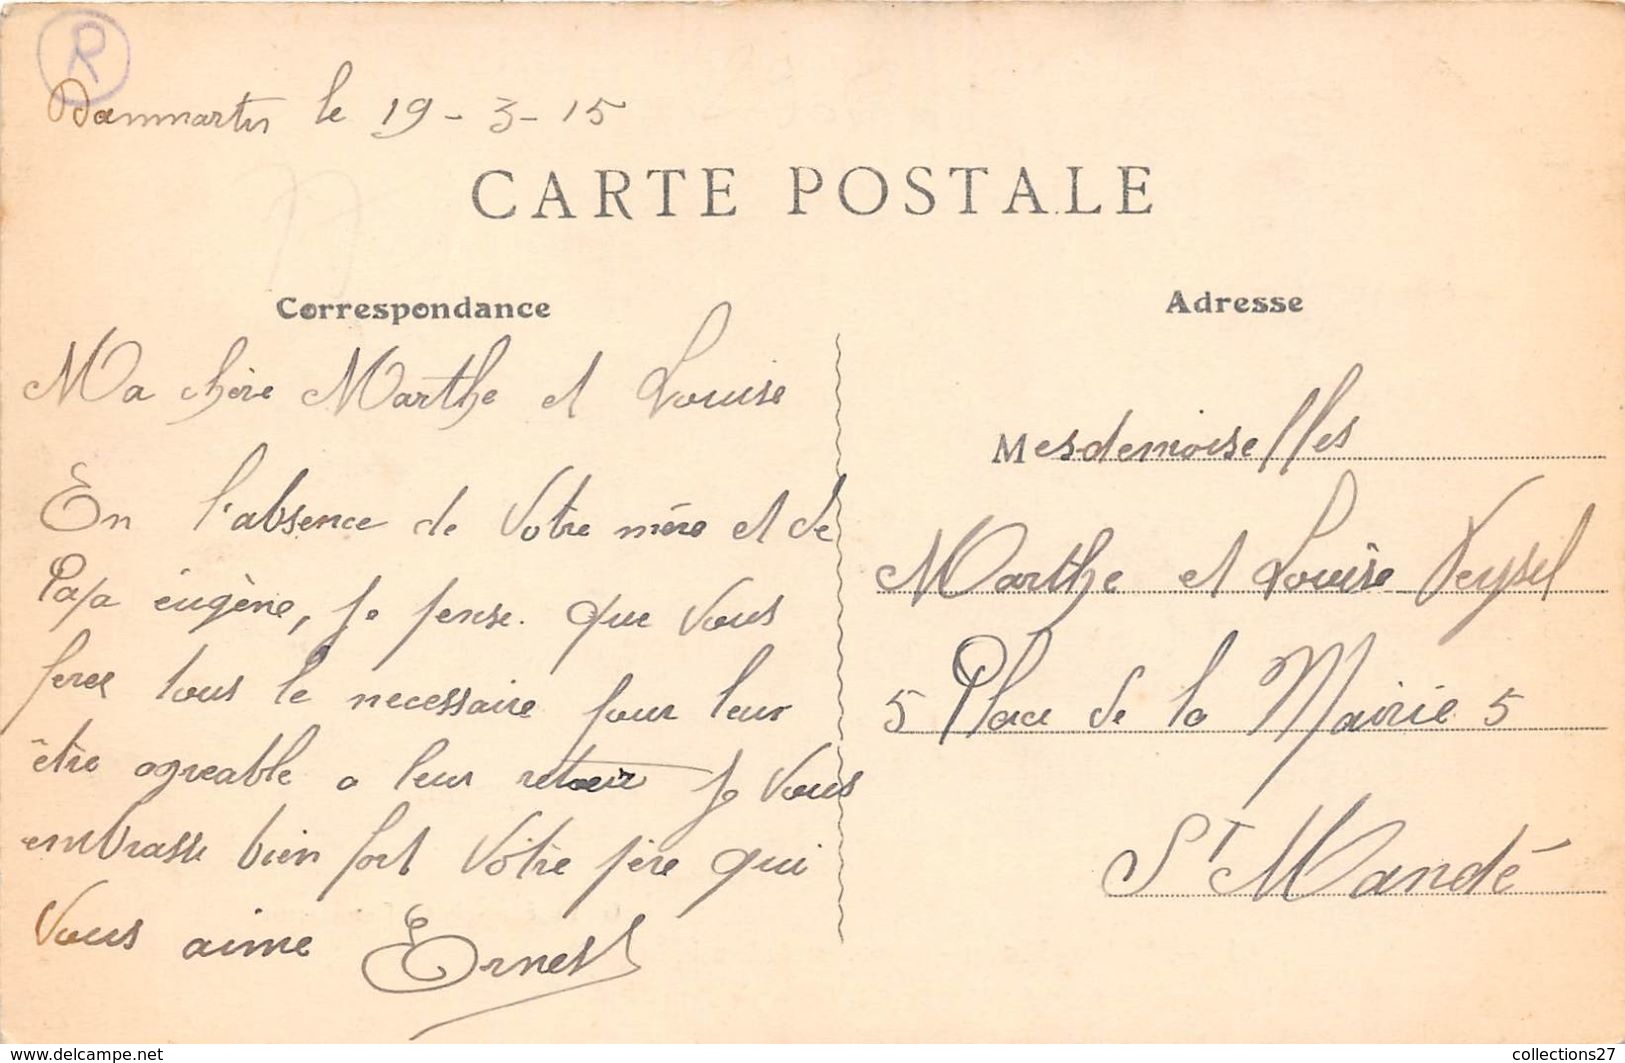 R
Dammartin le 19-3-15
CARTE POSTALE
Correspondance
Ma chère Marthe et Louise
En l'absence de Votre mère et de
Papa éugène, je pense que Vous
ferez tous le necessaire pour leur
être agreable a leur retour je Vous
embrasse bien fort Vôtre père qui
Vous aime Ernest
Adresse
Mesdemoiselles
Marthe et Louise Veysel
5 Place de la Mairie 5
St Mandé
www.delcampe.net
collections27